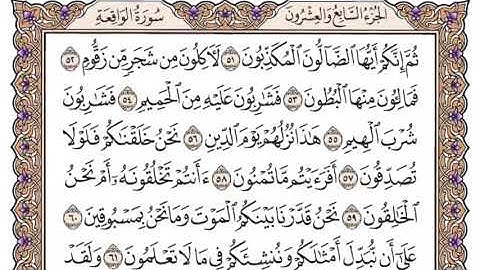 الجزء السابع والعشرون
سورة الواقعة
ثُمَّ إِنَّكُمْ أَيُّهَا الضَّالُّونَ الْمُكَذِّبُونَ ٥١ لَآكِلُونَ مِن شَجَرٍ مِّن زَقُّومٍ ٥٢
فَمَالِئُونَ مِنْهَا الْبُطُونَ ٥٣ فَشَارِبُونَ عَلَيْهِ مِنَ الْحَمِيمِ ٥٤ فَشَارِبُونَ
شُرْبَ الْهِيمِ ٥٥ هَٰذَا نُزُلُهُمْ يَوْمَ الدِّينِ ٥٦ نَحْنُ خَلَقْنَاكُمْ فَلَوْلَا
تُصَدِّقُونَ ٥٧ أَفَرَءَيْتُم مَّا تُمْنُونَ ٥٨ ءَأَنتُمْ تَخْلُقُونَهُ أَمْ نَحْنُ
الْخَالِقُونَ ٥٩ نَحْنُ قَدَّرْنَا بَيْنَكُمُ الْمَوْتَ وَمَا نَحْنُ بِمَسْبُوقِينَ ٦٠
عَلَىٰ أَن نُّبَدِّلَ أَمْثَالَكُمْ وَنُنشِئَكُمْ فِي مَا لَا تَعْلَمُونَ ٦١ وَلَقَدْ